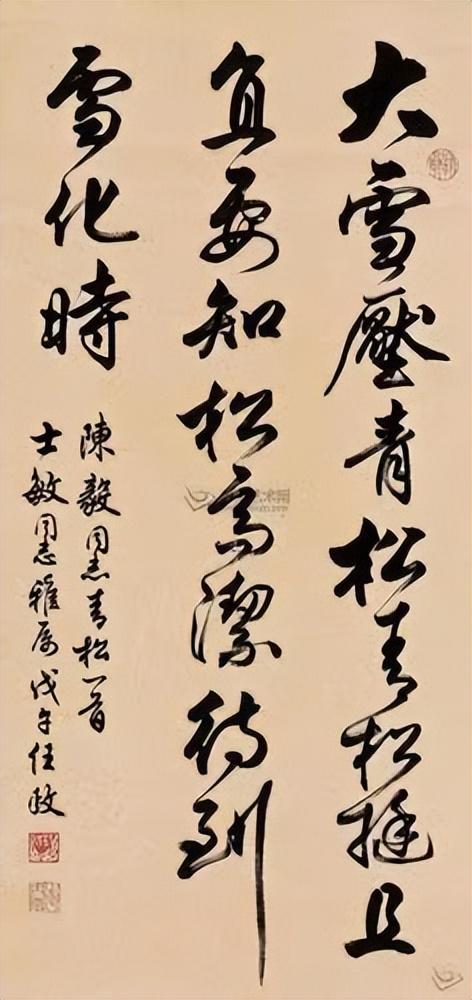 大雪壓青松青松挺且
直要知松高潔待到
雪化時
陳毅同志青松一首
士敏同志雅属戊午任政